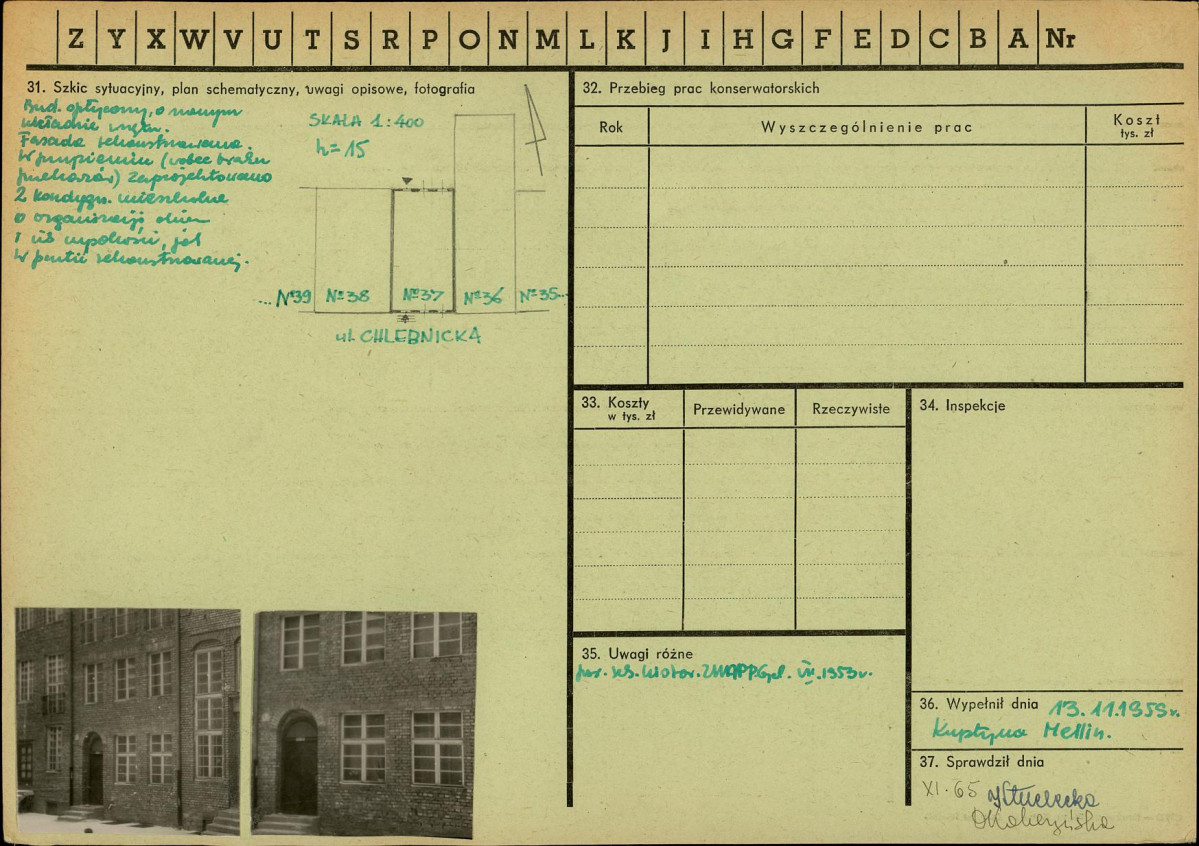 Z Y X W V U T S R P O N M L K J I H G F E D C B A Nr
31. Szkic sytuacyjny, plan schematyczny, uwagi opisowe, fotografia
o nowym
układzie wnętrz.
Fasada rekonstruowana.
W przyziemiu (wobec braku
) zaprojektowano
2 kondygn. mieszkalne
o organizacji okien
i ich wysokości, jak
w partii rekonstruowanej.
SKALA 1:400
h = 15
... №39 №38 №37 №36 №35...
ul. CHLEBNICKA
32. Przebieg prac konserwatorskich
Rok
Wyszczególnienie prac
Koszt
tys. zł
33. Koszty
w tys. zł
Przewidywane
Rzeczywiste
34. Inspekcje
35. Uwagi różne
1953 r.
36. Wypełnił dnia 13.11.1959 r.
Mellin.
37. Sprawdził dnia
XI.65